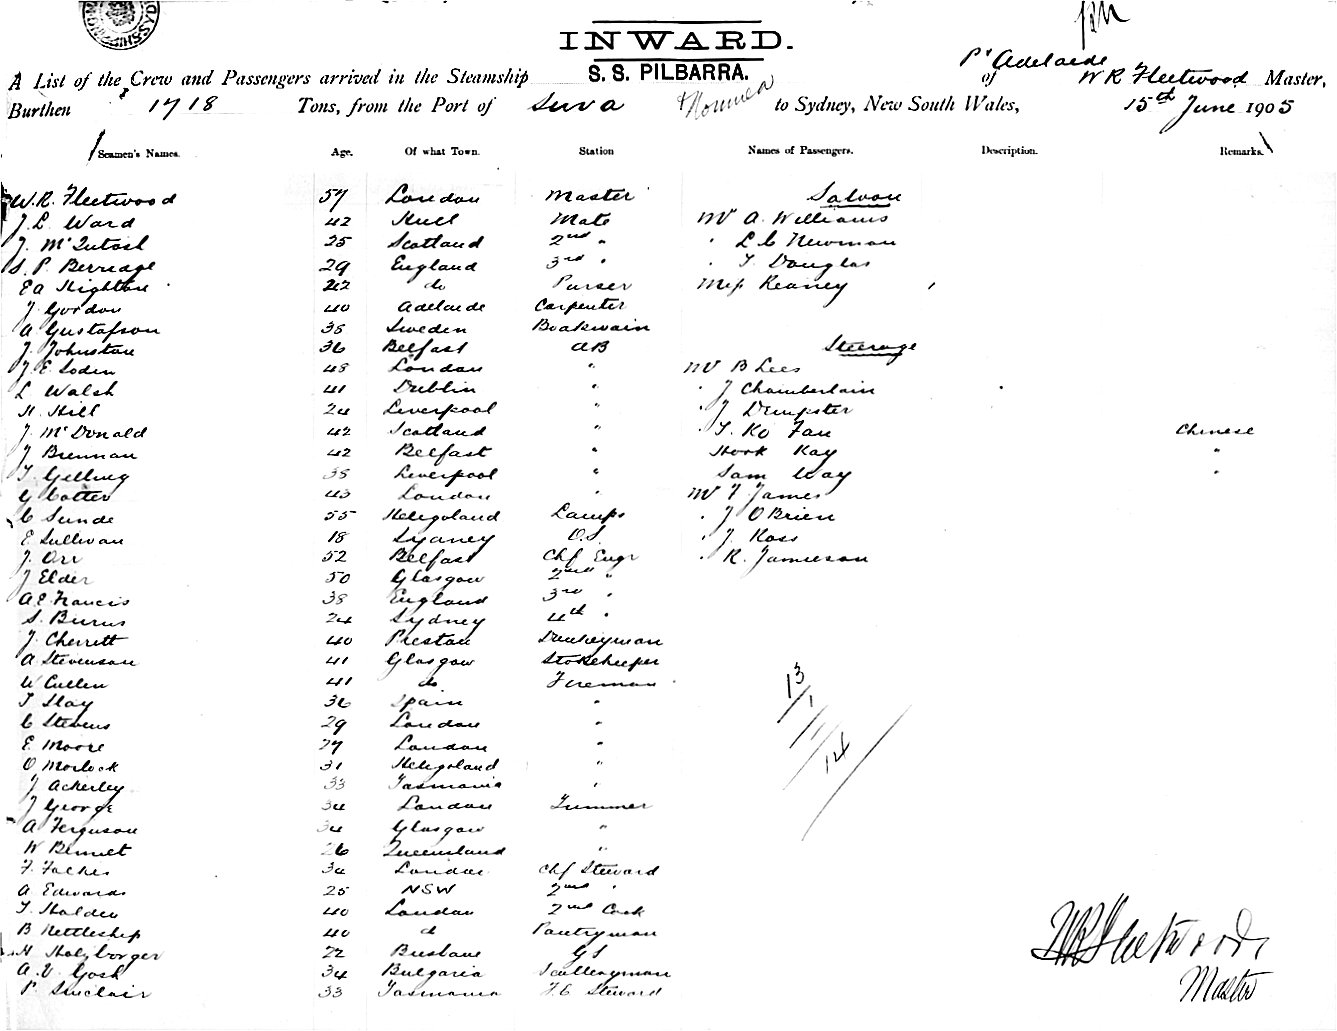 INWARD.
S. S. PILBARRA.
Pt Adelaide
A List of the Crew and Passengers arrived in the Steamship of W R Fleetwood Master,
Burthen 1718 Tons, from the Port of Suva & Noumea to Sydney, New South Wales, 15th June 1905
Seamen's Names. Age. Of what Town. Station Names of Passengers. Description. Remarks.
W.R. Fleetwood 57 London Master Saloon
J. L. Ward 42 Hull Mate Mr A. Williams
J. McIntosh 25 Scotland 2nd " " L C Newman
S. P. Berridge 29 England 3rd " " T. Douglas
EA Highton 42 do Purser Miss Reaney
J Gordon 40 Adelaide Carpenter
A Gustafson 38 Sweden Boatswain
J. Johnston 36 Belfast AB Steerage
J. E. Soden 48 London " Mr B Lees
L Walsh 41 Dublin " " J Chamberlain
H. Hill 24 Liverpool " " J Dempster
J. McDonald 42 Scotland " " T. Ko Fan Chinese
J Brennan 42 Belfast " Hook Kay "
T. Gelling 38 Liverpool " Sam Way "
G Cotter 43 London " Mr T James
C Sunde 55 Helegoland Lamps " J OBrien
E Sullivan 18 Sydney O.S " J. Ross
J. Orr 52 Belfast Chf Engr " R. Jamieson
J Elder 50 Glasgow 2nd "
A E Francis 38 England 3rd "
S. Burns 24 Sydney 4th "
J. Cherrett 40 Preston Donkeyman
A Stevenson 41 Glasgow Storekeeper
W Cullen 41 do Fireman
T Hay 36 Spain "
C Stevens 29 London "
E Moore 27 London "
O Morlock 31 Helegoland "
J Ackerley 33 Tasmania "
J George 34 London Trimmer
A Ferguson 34 Glasgow "
W Bennet 26 Queensland "
F. 34 London Chf Steward
A Edwards 25 NSW 2nd "
T. Holden 40 London 2nd Cook
B Nettleship 40 d Pantryman
H Holzborger 22 Brisbane GS
A. V. Gosh 34 Bulgaria Sculleryman
P. Sinclair 33 Tasmania F.C Steward
13
1
1
14
WR Fleetwood
Master